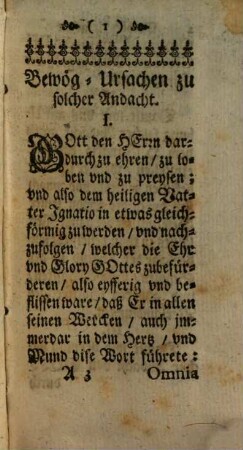 ( 1 )
Bewög-Ursachen zu
solcher Andacht.
I.
GOtt den HErrn dar-
durch zu ehren / zu lo-
ben vnd zu preysen;
vnd also dem heiligen Vat-
ter Ignatio in etwas gleich-
förmig zu werden / vnd nach-
zufolgen / welcher die Ehr
vnd Glory GOttes zubefür-
deren / also eyfferig vnd be-
flissen ware / daß Er in allen
seinen Wercken / auch jm-
merdar in dem Hertz / vnd
Mund dise Wort führete:
A 3 Omnia